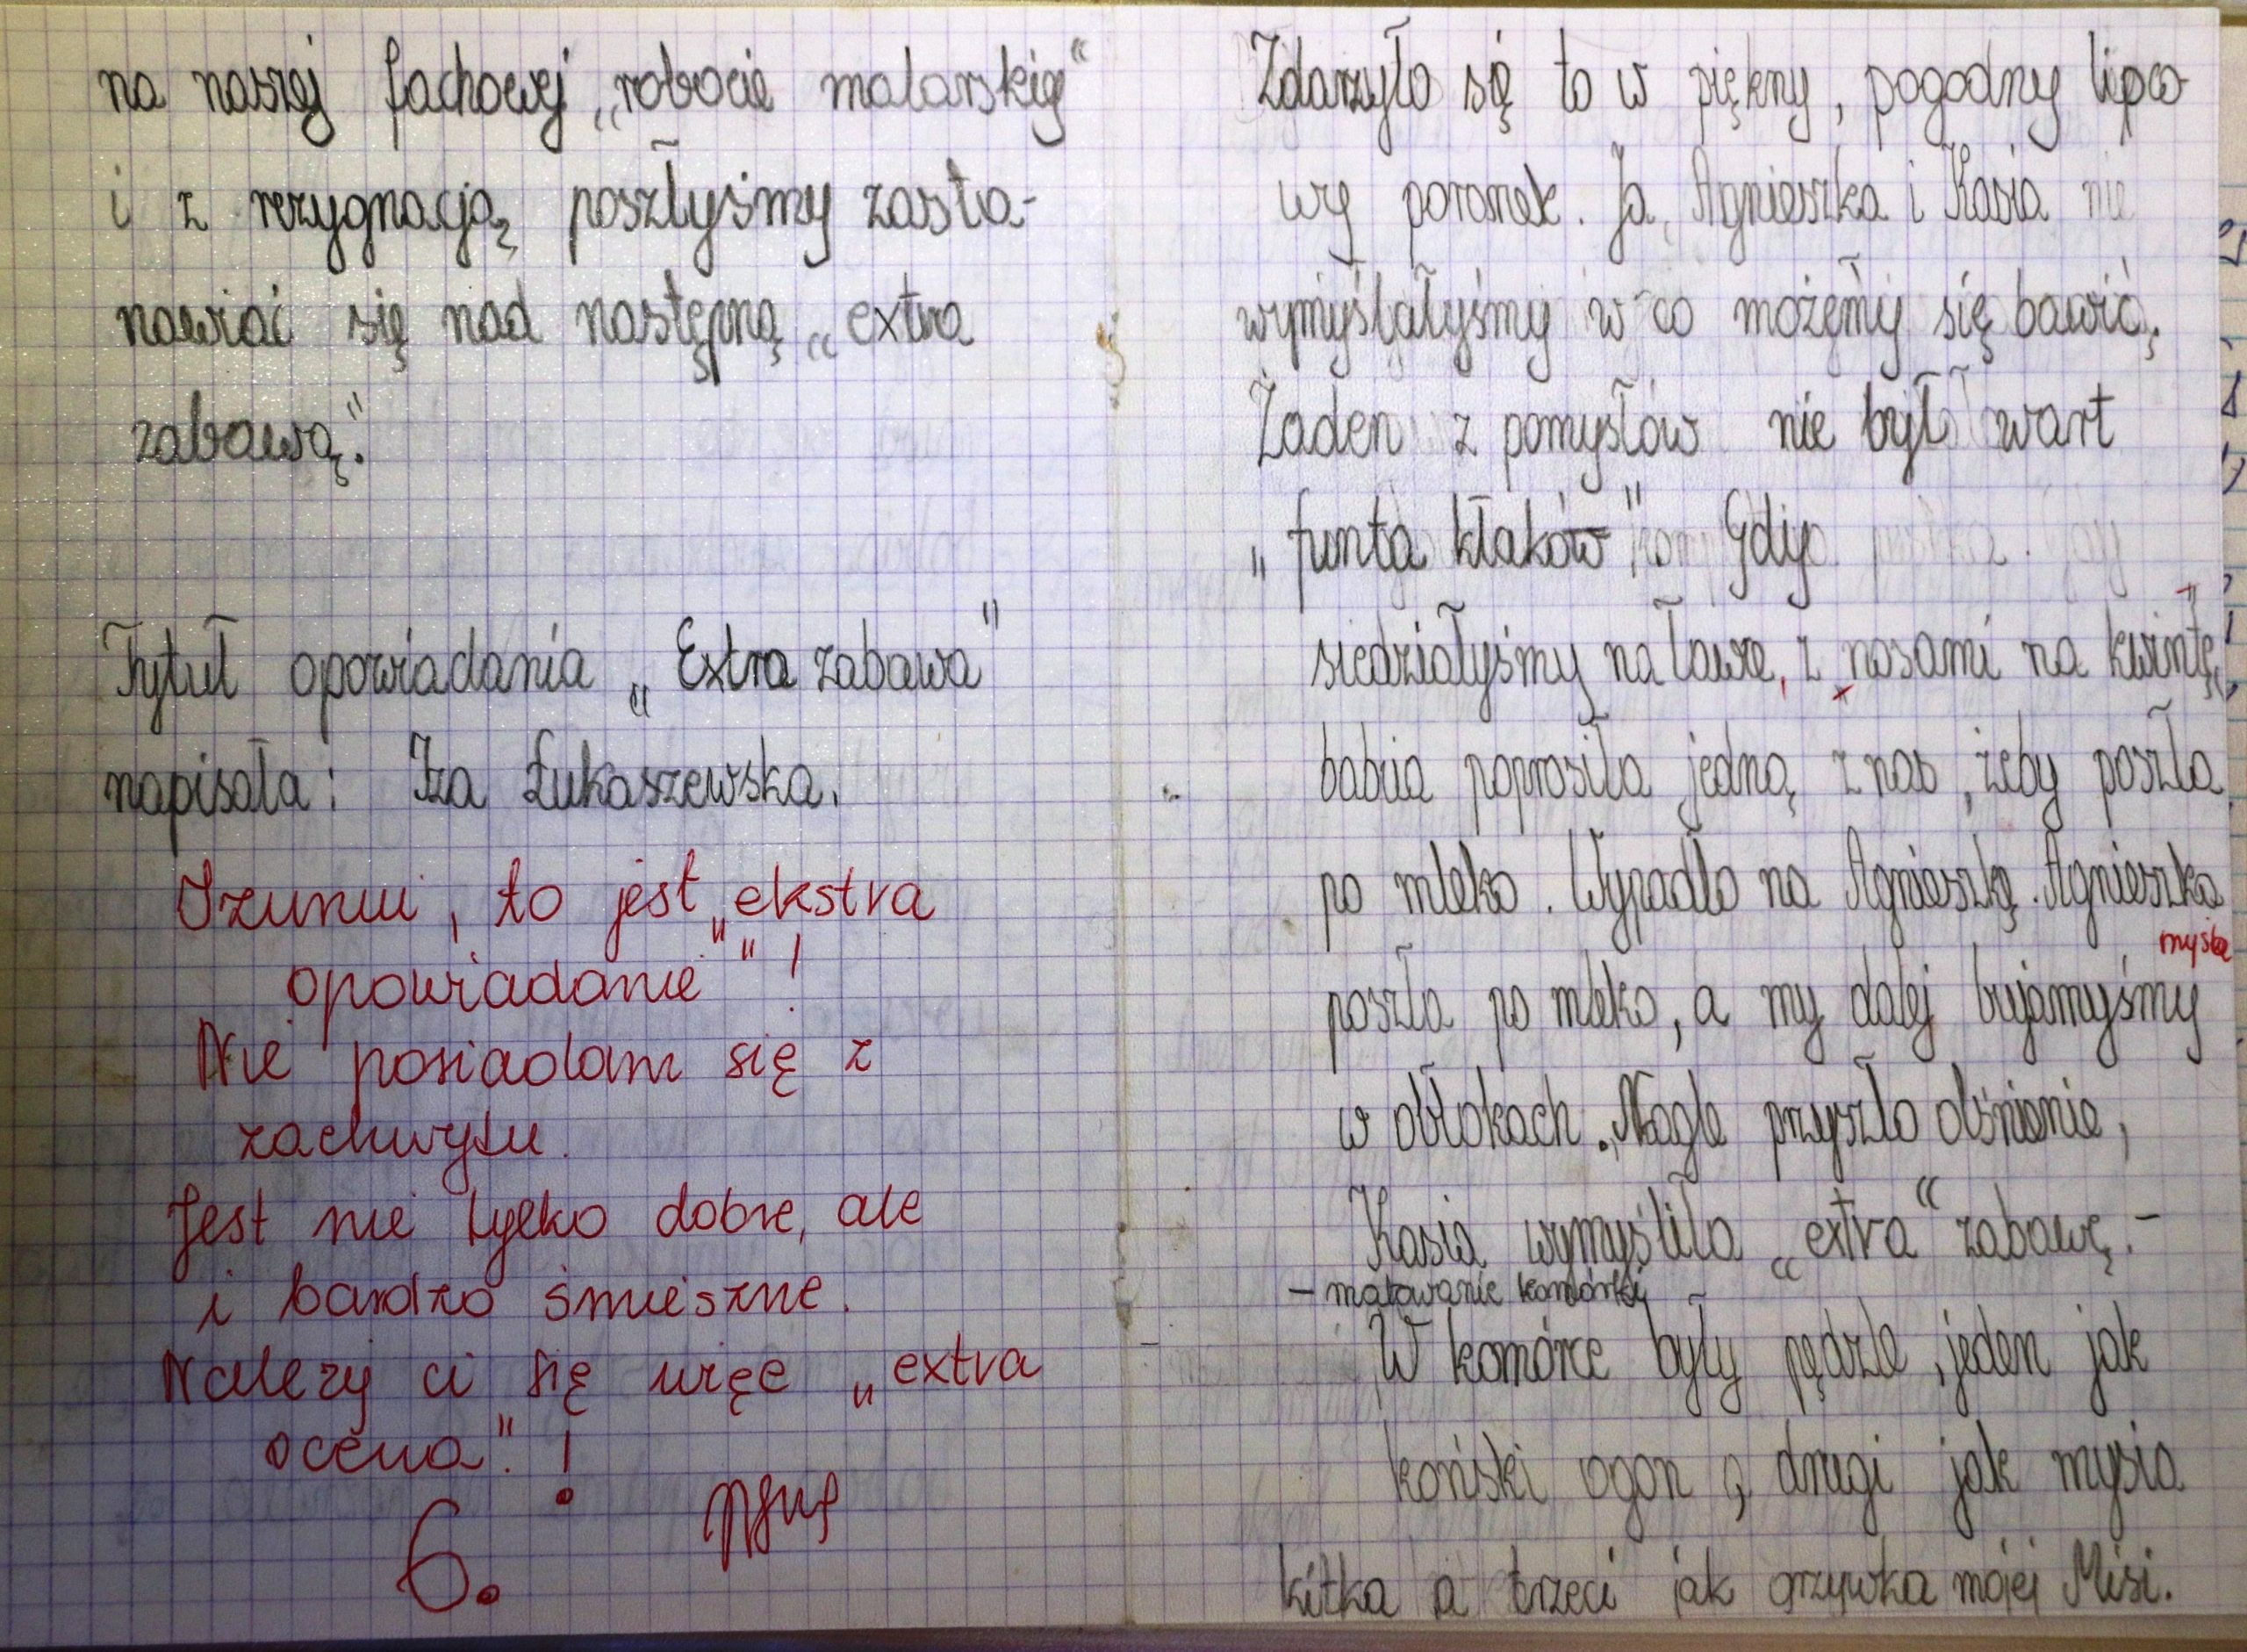 na naszej fachowej „robocie malarskiej"
i z rezygnacją poszłyśmy zasta-
nawiać się nad następną „extra
zabawą."
Tytuł opowiadania „Extra zabawa"
napisała: Iza Łukaszewska.
Izuniu, to jest „ekstra
opowiadanie"!
Nie posiadam się z
zachwytu.
Jest nie tylko dobre, ale
i bardzo śmieszne.
Należy ci się więc „extra
ocena"!
6.
Zdarzyło się to w piękny, pogodny lipco
wy poranek. Ja, Agnieszka i Kasia
wymyślałyśmy w co możemy się bawić.
Żaden z pomysłów nie był wart
„funta kłaków". Gdy
siedziałyśmy na ławce, z nosami na kwintę,
babcia poprosiła jedną z nas, żeby poszła
po mleko. Wypadło na Agnieszkę. Agnieszka
poszła po mleko, a my dalej bujamyśmy
w obłokach. Nagle przyszło olśnienie,
Kasia wymyśliła „extra" zabawę. -
- malowanie komórki
W komórce były pędzle, jeden jak
koński ogon, drugi jak mysia
kitka a trzeci jak grzywka mojej Misi.